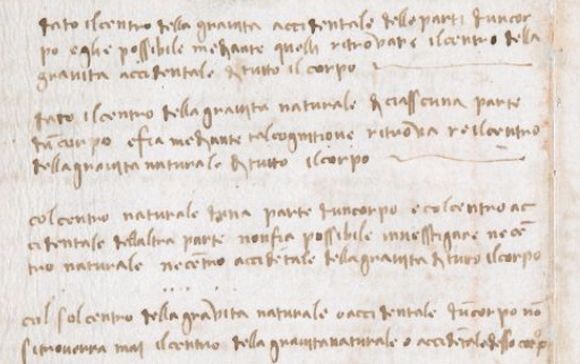 dato il centro della gravita accidentale delle parti dun cor
po eglie possibile mediante quelli ritrovare il centro della
gravita accidentale di tutto il corpo
dato il centro della gravita naturale di ciasscuna parte
dun corpo effia mediante tal cognitione ritrovare il centro
della gravita naturale di tutto il corpo
col centro naturale duna parte dun corpo e col centro ac
cidentale dellaltra parte non fia possibile invesstigare ne cē
tro naturale ne cētro accidētale della gravita di tutto il corpo
col sol centro della gravita naturale o accidentale dun corpo nō
si troverra mai il centro della gravita naturale o accidētale desso corpo